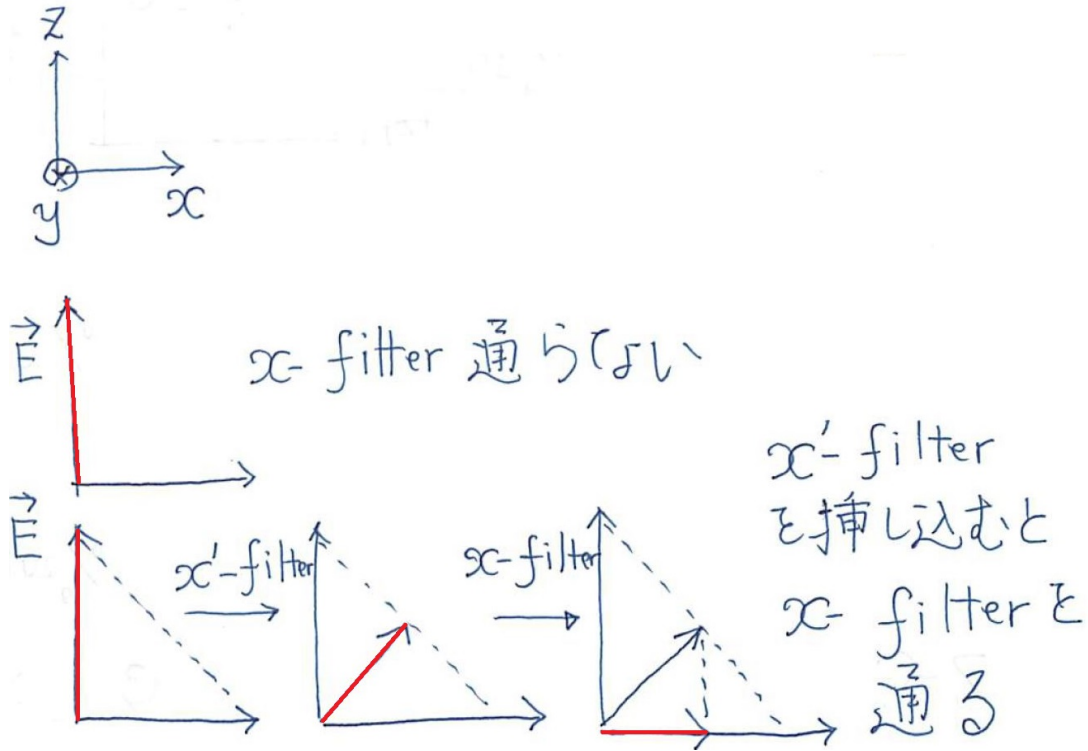 z
x
y
E
x- filter 通らない
E
x'-filter
x-filter
x'- filter
を挿し込むと
x- filter を
通る